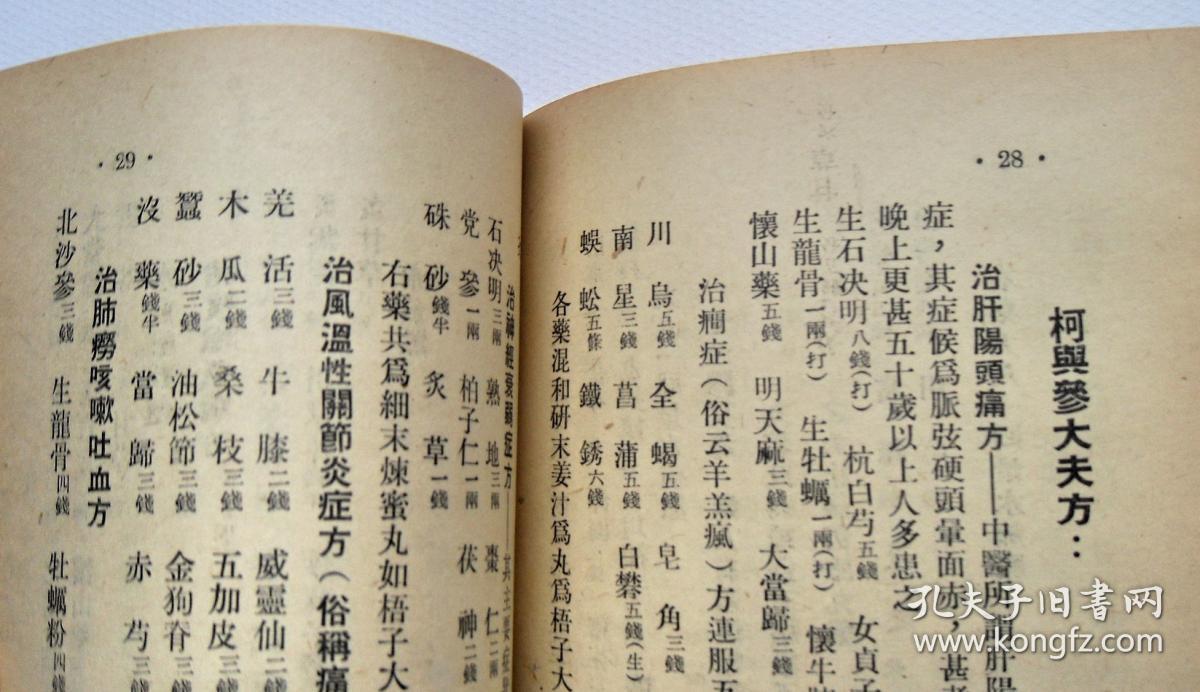 · 28 ·
柯與參大夫方：
治肝陽頭痛方——中醫所謂肝陽
症，其症候爲脈弦硬頭暈面赤，甚者
晚上更甚五十歲以上人多患之
生石决明八錢(打) 杭白芍五錢 女貞子
生龍骨一兩(打) 生牡蠣一兩(打) 懷牛膝
懷山藥五錢 明天麻三錢 大當歸三錢
治癎症(俗云羊羔瘋)方連服五
川烏五錢 全蝎五錢 皂角三錢
南星三錢 菖蒲五錢 白礬五錢(生)
蜈蚣五條 鐵銹六錢
各藥混和研末姜汁爲丸爲梧子大
· 29 ·
治神經衰弱症方——其主要症
石决明三兩 熟地三兩 棗仁二兩
党參一兩 柏子仁一兩 茯神二錢
硃砂錢半 炙草一錢
右藥共爲細末煉蜜丸如梧子大
治風溫性關節炎症方(俗稱痛
羌活三錢 牛膝二錢 威靈仙二錢
木瓜二錢 桑枝三錢 五加皮三錢
蠶砂三錢 油松節三錢 金狗脊三錢
沒藥錢半 當歸三錢 赤芍三錢
治肺癆咳嗽吐血方
北沙參三錢 生龍骨四錢 牡蠣粉四錢
孔夫子旧書网
www.kongfz.com